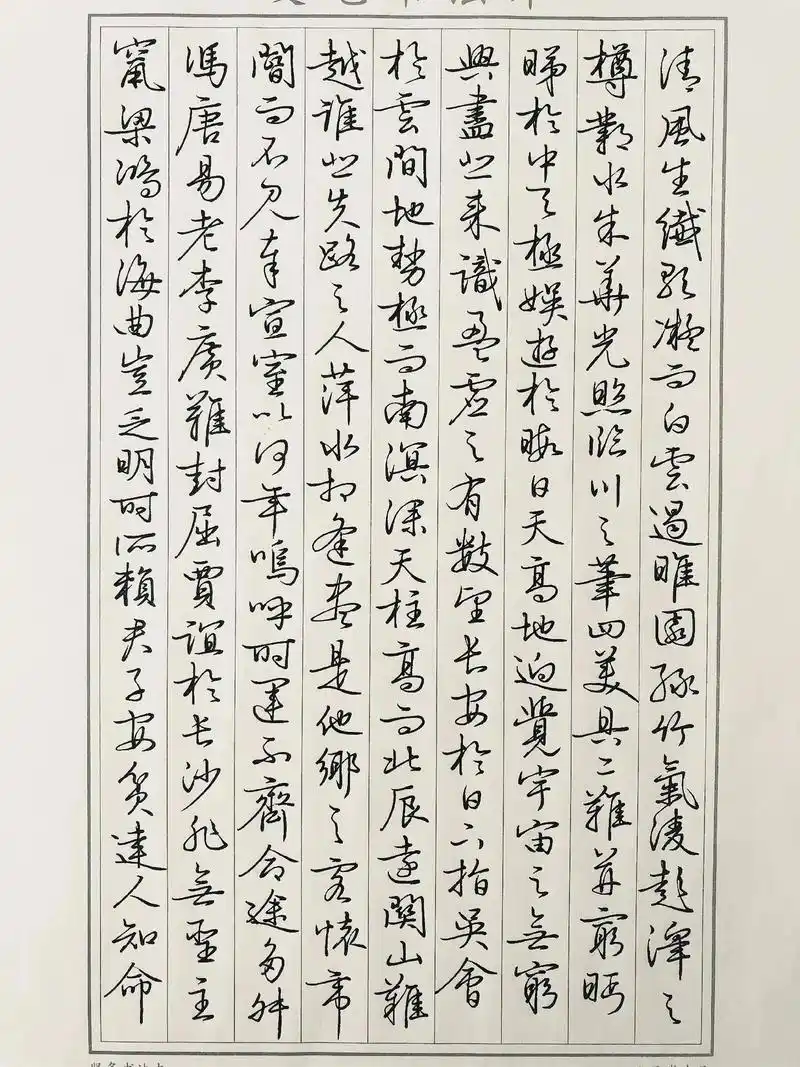 清風生纖歌凝而白雲遏睢園綠竹氣凌彭澤之
樽鄴水朱華光照臨川之筆四美具二難并窮眄
睇於中天極娛遊於暇日天高地迥覺宇宙之無窮
興盡悲來識盈虛之有數望長安於日下指吳會
於雲間地勢極而南溟深天柱高而北辰遠關山難
越誰悲失路之人萍水相逢盡是他鄉之客懷帝
閽而不見奉宣室以何年嗚呼時運不齊命途多舛
馮唐易老李廣難封屈賈誼於長沙非無聖主
竄梁鴻於海曲豈乏明時所賴君子安貧達人知命